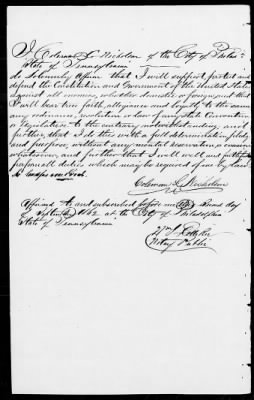 I Coleman L. Nicholson of the City of Phila
State of Pennsylvania
do solemnly affirm that I will support, protect and
defend the Constitution and Government of the United States
against all enemies, whether domestic or foreign, and that
I will bear true faith, allegiance and loyalty to the same
any ordinance, resolution or law of any State Convention
or Legislature to the contrary notwithstanding, and
further, that I do this with a full determination, pledge
and purpose, without any mental reservation or evasion
whatsoever, and further that I will well and faithfully
perform all duties which may be required of me by law
Coleman L. Nicholson
Affirmed to and subscribed before me this Second day
of September 1862 at the City of Philadelphia
State of Pennsylvania
Notary Public